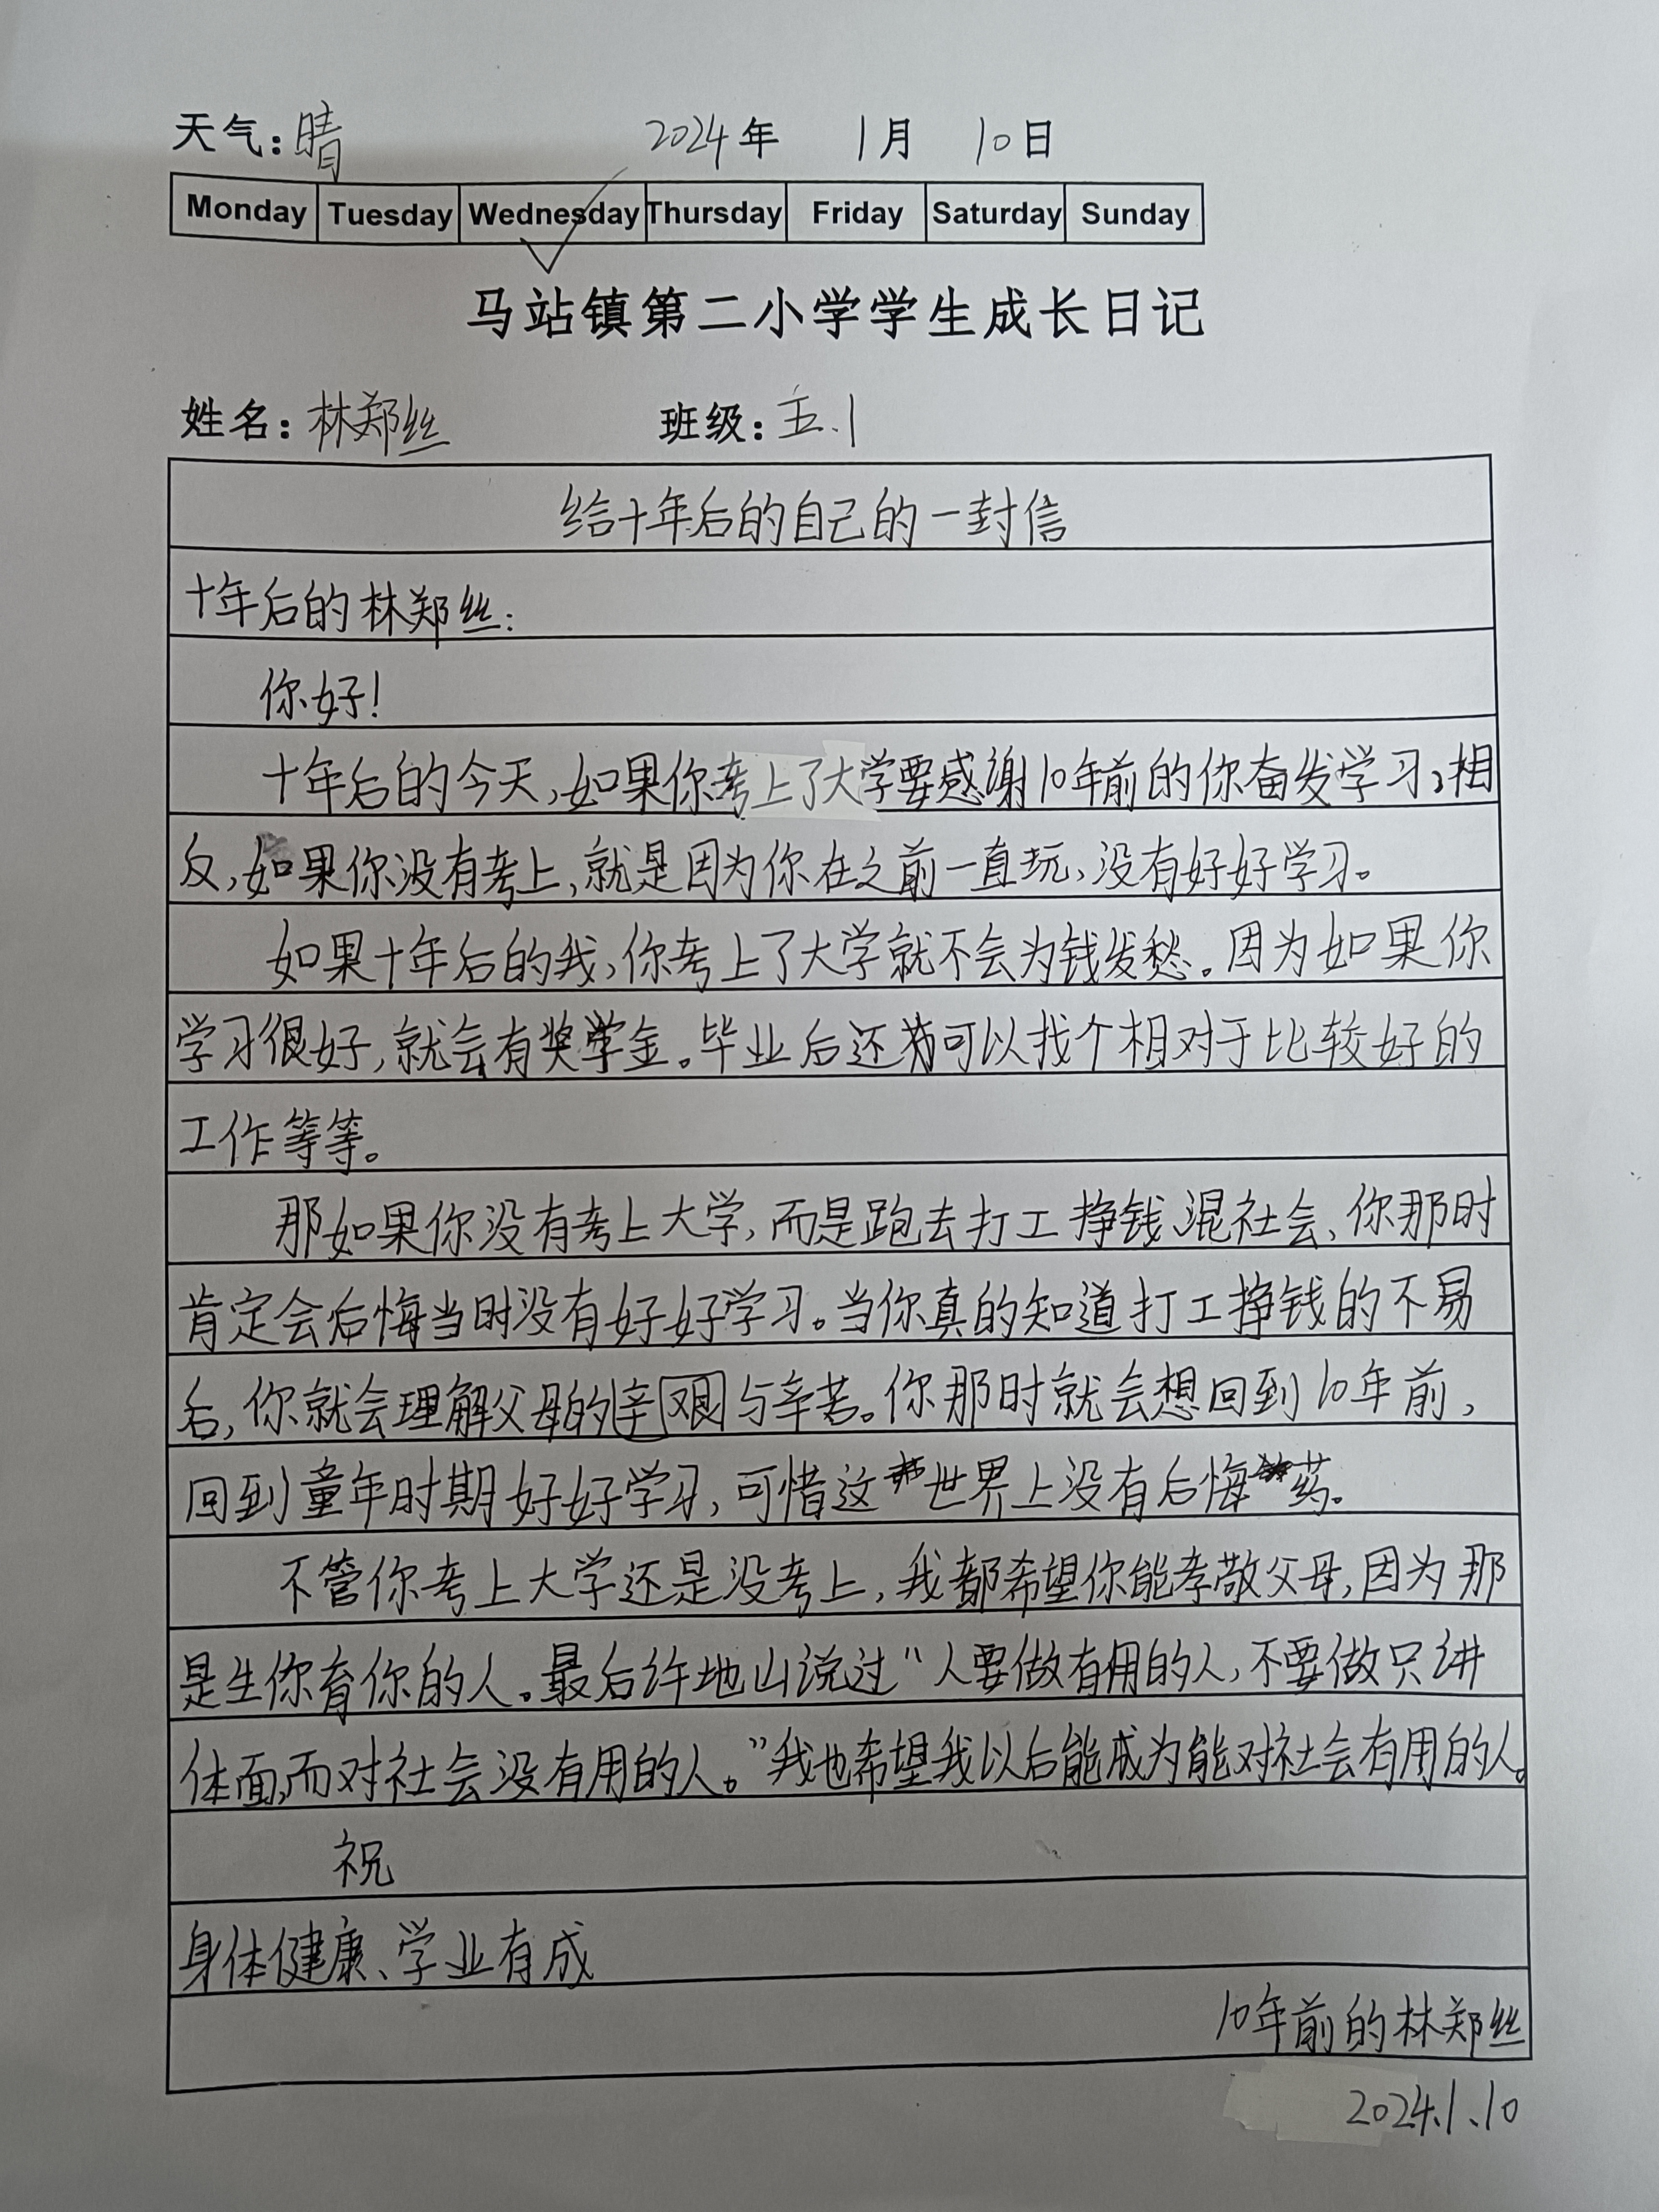 天气：晴 2024年 1月 10日
Monday Tuesday Wednesday Thursday Friday Saturday Sunday
马站镇第二小学学生成长日记
姓名：林郑丝 班级：五.1
给十年后的自己的一封信
十年后的林郑丝：
你好！
十年后的今天，如果你考上了大学要感谢10年前的你奋发学习，相
反，如果你没有考上，就是因为你在之前一直玩，没有好好学习。
如果十年后的我，你考上了大学就不会为钱发愁。因为如果你
学习很好，就会有奖学金。毕业后还可以找个相对于比较好的
工作等等。
那如果你没有考上大学，而是跑去打工挣钱、混社会、你那时
肯定会后悔当时没有好好学习。当你真的知道打工挣钱的不易
后，你就会理解父母的辛艰与辛苦。你那时就会想回到10年前，
回到童年时期好好学习，可惜这世界上没有后悔药。
不管你考上大学还是没考上，我都希望你能孝敬父母，因为那
是生你育你的人。最后许地山说过“人要做有用的人，不要做只讲
体面，而对社会没有用的人。”我也希望我以后能成为能对社会有用的人。
祝
身体健康、学业有成
10年前的林郑丝
2024.1.10